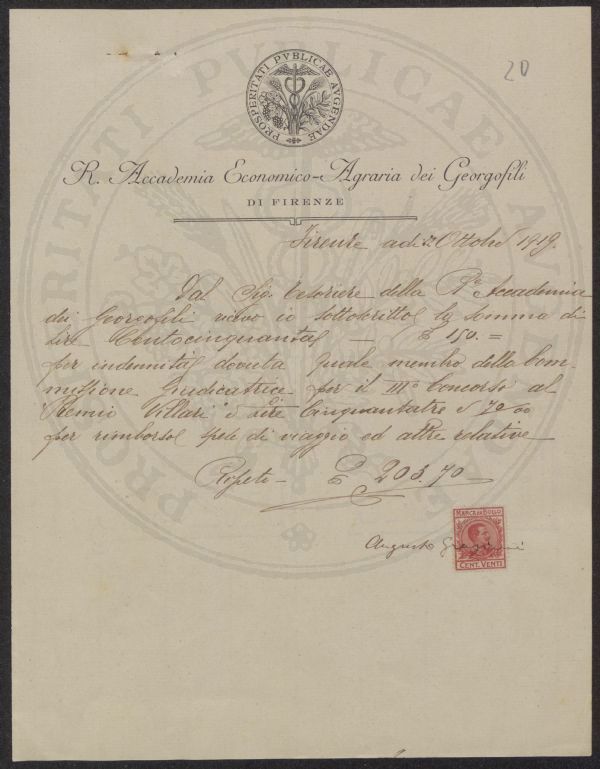 20
PROSPERITATI PVBLICAE AVGENDAE
R. Accademia Economico-Agraria dei Georgofili
DI FIRENZE
Firenze adi Ottobre 1919.
Dal Sig. Tesoriere della Rª Accademia
dei Georgofili ricevo io sottoscritto la somma di
lire Centocinquanta — £ 150.=
per indennità dovuta quale membro della Com-
missione Giudicatrice per il IIIº Concorso al
Premio Villari e Lire Cinquantatre e 70/00
per rimborso spese di viaggio ed altre relative
Ripeto — £ 203.70 —
MARCA DA BOLLO
Augusto Graziani
CENT. VENTI